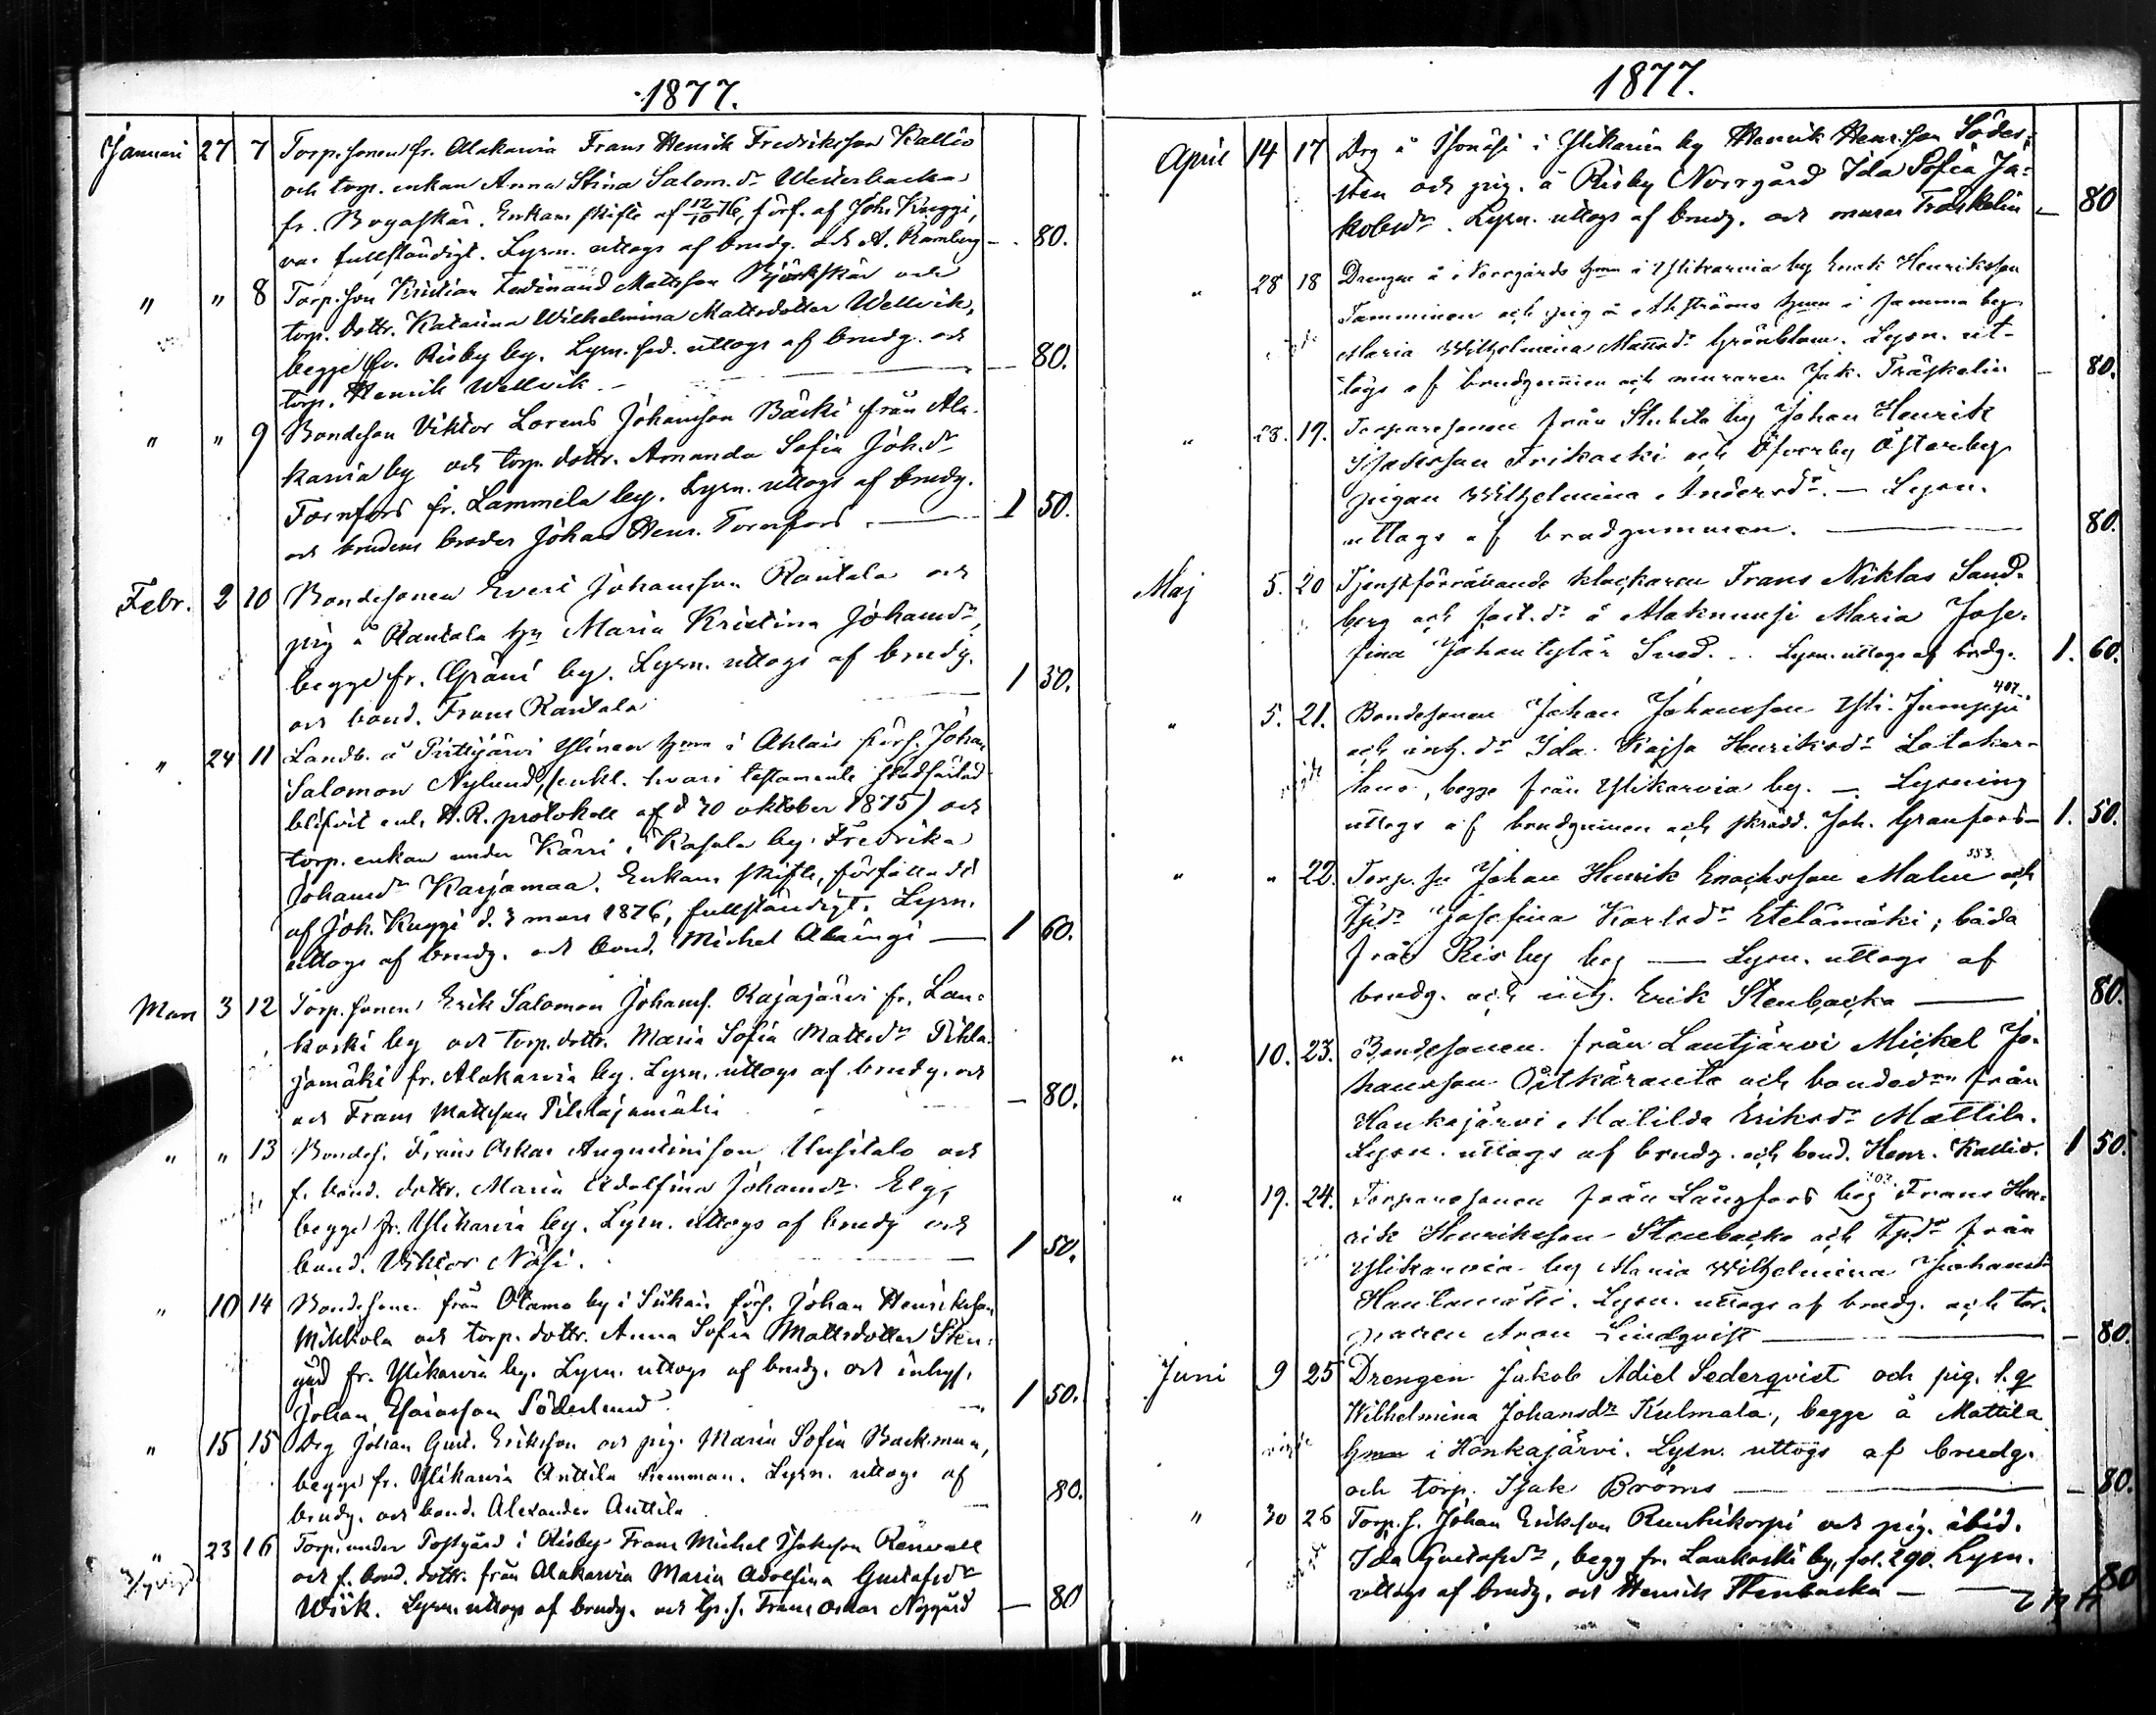 1877.
Januari 27 7 Torp.sonen fr. Alakarvia Frans Henrik Fredriksson Kallio
och torp. enkan Anna Stina Salom.dr Westerbacka
fr. Bogaskär. Enkans skifte af 12/10 76, förf. af Joh. Kuggi,
var fullständigt. Lysn. uttogs af brudg. och A. Ramberg — 80.
" " 8 Torp.son Kristian Ferdinand Mattsson Björkskär och
torp. dottr. Katarina Wilhelmina Mattsdotter Wellvik,
begge fr. Risby by. Lysn.sed. uttogs af brudg. och
torp. Henrik Wellvik — — 80.
" " 9 Bondeson Viktor Lorens Johansson Bäcki från Ala-
karvia by och torp. dottr. Amanda Sofia Joh.dr
Tornfors fr. Lammela by. Lysn. uttogs af brudg.
och brudens broder Johan Henr. Tornfors. — 1 50.
Febr. 2 10 Bondesonen Everi Johansson Rantala och
pig å Rantala hn Maria Kristina Johansdr,
begge fr. Gräni by. Lysn. uttogs af brudg.
och bond. Frans Rantala 1 50.
" 24 11 Landb. å Pirttijärvi Ylinen hmn i Ahlais förs. Johan
Salomon Nylund, (enkl. hvars testamente stadfästad
blifvit enl. H.R. protokoll af d 30 oktober 1875) och
torp. enkan under Kärri i Kasala by Fredrika
Johansdr Karjamaa. Enkans skifte, författadt
af Joh. Kuggi d. 3 mars 1876, fullständigt. Lysn.
uttogs af brudg. och bond. Michel Alaingi — 1 60.
Mars 3 12 Torp.sonen Erik Salomon Johanss. Rajajärvi fr. Lan-
koski by och torp. dottr. Maria Sofia Mattsdr Pihla-
jamäki fr. Alakarvia by. Lysn. uttogs af brudg. och
och Frans Mattsson Pihlajamäki — 80.
" " 13 Bondes. Frans Oskar Augustinisson Uusitalo och
f. bond. dottr. Maria Adolfina Johansdr Elg,
begge fr. Ylikarvia by. Lysn. uttogs af brudg och
bond. Viktor Näsi. 1 50.
" 10 14 Bondesonen från Otamo by i Siikais förs. Johan Henriksson
Mikkola och torp. dottr. Anna Sofia Mattsdotter Sten-
gård fr. Ylikarvia by. Lysn. uttogs af brudg. och inhys.
Johan Esaiasson Söderlund 1 50.
" 15 15 Drg Johan Gust. Eriksson och pig. Maria Sofia Backman,
begge fr. Ylikarvia Anttila hemman. Lysn. uttogs af
brudg. och bond. Alexander Anttila 80.
" 23 16 Torp. under Tostgård i Risby Frans Michel Isaksson Renvall
och f. bond. dottr. från Alakarvia Maria Adolfina Gustafsdr
Wiik. Lysn. uttogs af brudg. och tp.s. Frans Oskar Nygård — 80
1877.
April 14 17 Drg å Isonäsi i Ylikarvia by Henrik Henr.son Söder-
sten och pig. å Risby Norrgård Ida Sofia Ja-
kobsdr. Lysn. uttogs af brudg. och murar Träskelin — 80
" 28 18 Drengen å Norrgårds hmn i Ylikarvia by Enok Henriksson
Tamminen och pig å Ahlströms hmn i samma by
Maria Wilhelmina Mattsdr Grönblom. Lysn. ut-
togs af brudgummen och muraren Jak. Träskelin — 80.
" 28. 19. Torparesonen från Stubila by Johan Henrik
Isaksson Trikacki och Öfverby Österby
pigan Wilhelmina Andersdr. — Lysn.
uttogs af brudgummen. — 80.
Maj 5. 20 Tjenstförrättande klockaren Frans Niklas Sand-
berg och dr å Alaknuusi Maria Jose-
fina Johantytär Lysn. uttogs af brudg. 1. 60.
" 5. 21. Bondesonen Johan Johansson Yli-Juonppi 407.
och inh. dr Ida Kajsa Henriksdr Latokar-
tano, begge från Ylikarvia by. — Lysning
uttogs af brudgummen och skrädd. Joh. Granfors — 1. 50.
" " 22. Torp. sn Johan Henrik Enochsson Malm och
tpdr Josefina Karlsdr Etelämäki; båda
från Risby by — Lysn. uttogs af
brudg. och inh. Erik Stenbacka — 80.
" 10. 23. Bondesonen från Lautjärvi Mickel Jo-
hansson Pitkäranta och bondedrn från
Honkajärvi Matilda Eriksdr Mattila.
Lysn. uttogs af brudg. och bond. Henr. Kallio. 1 50.
" 19. 24. Torparesonen från Långfors by Frans Hen-
rik Henriksson Stenbacka och tpdr från
Ylikarvia by Maria Wilhelmina Johansdr
Hautamäki. Lysn. uttogs af brudg. och tor-
paren Aron Lindqvist — 80.
Juni 9 25 Drengen Jakob Adiel Sederqvist och pig. l.q
Wilhelmina Johansdr Kulmala, begge å Mattila
hmn i Honkajärvi. Lysn. uttogs af brudg.
och torp. Isak Broms — 80.
" 30 26 Torp.s. Johan Eriksson Ruuhikorpi och pig. ibid.
Ida Gustafsdr, begg fr. Lankoski by, fol. 290. Lysn.
uttogs af brudg. och Henrik Stenbacka — 80